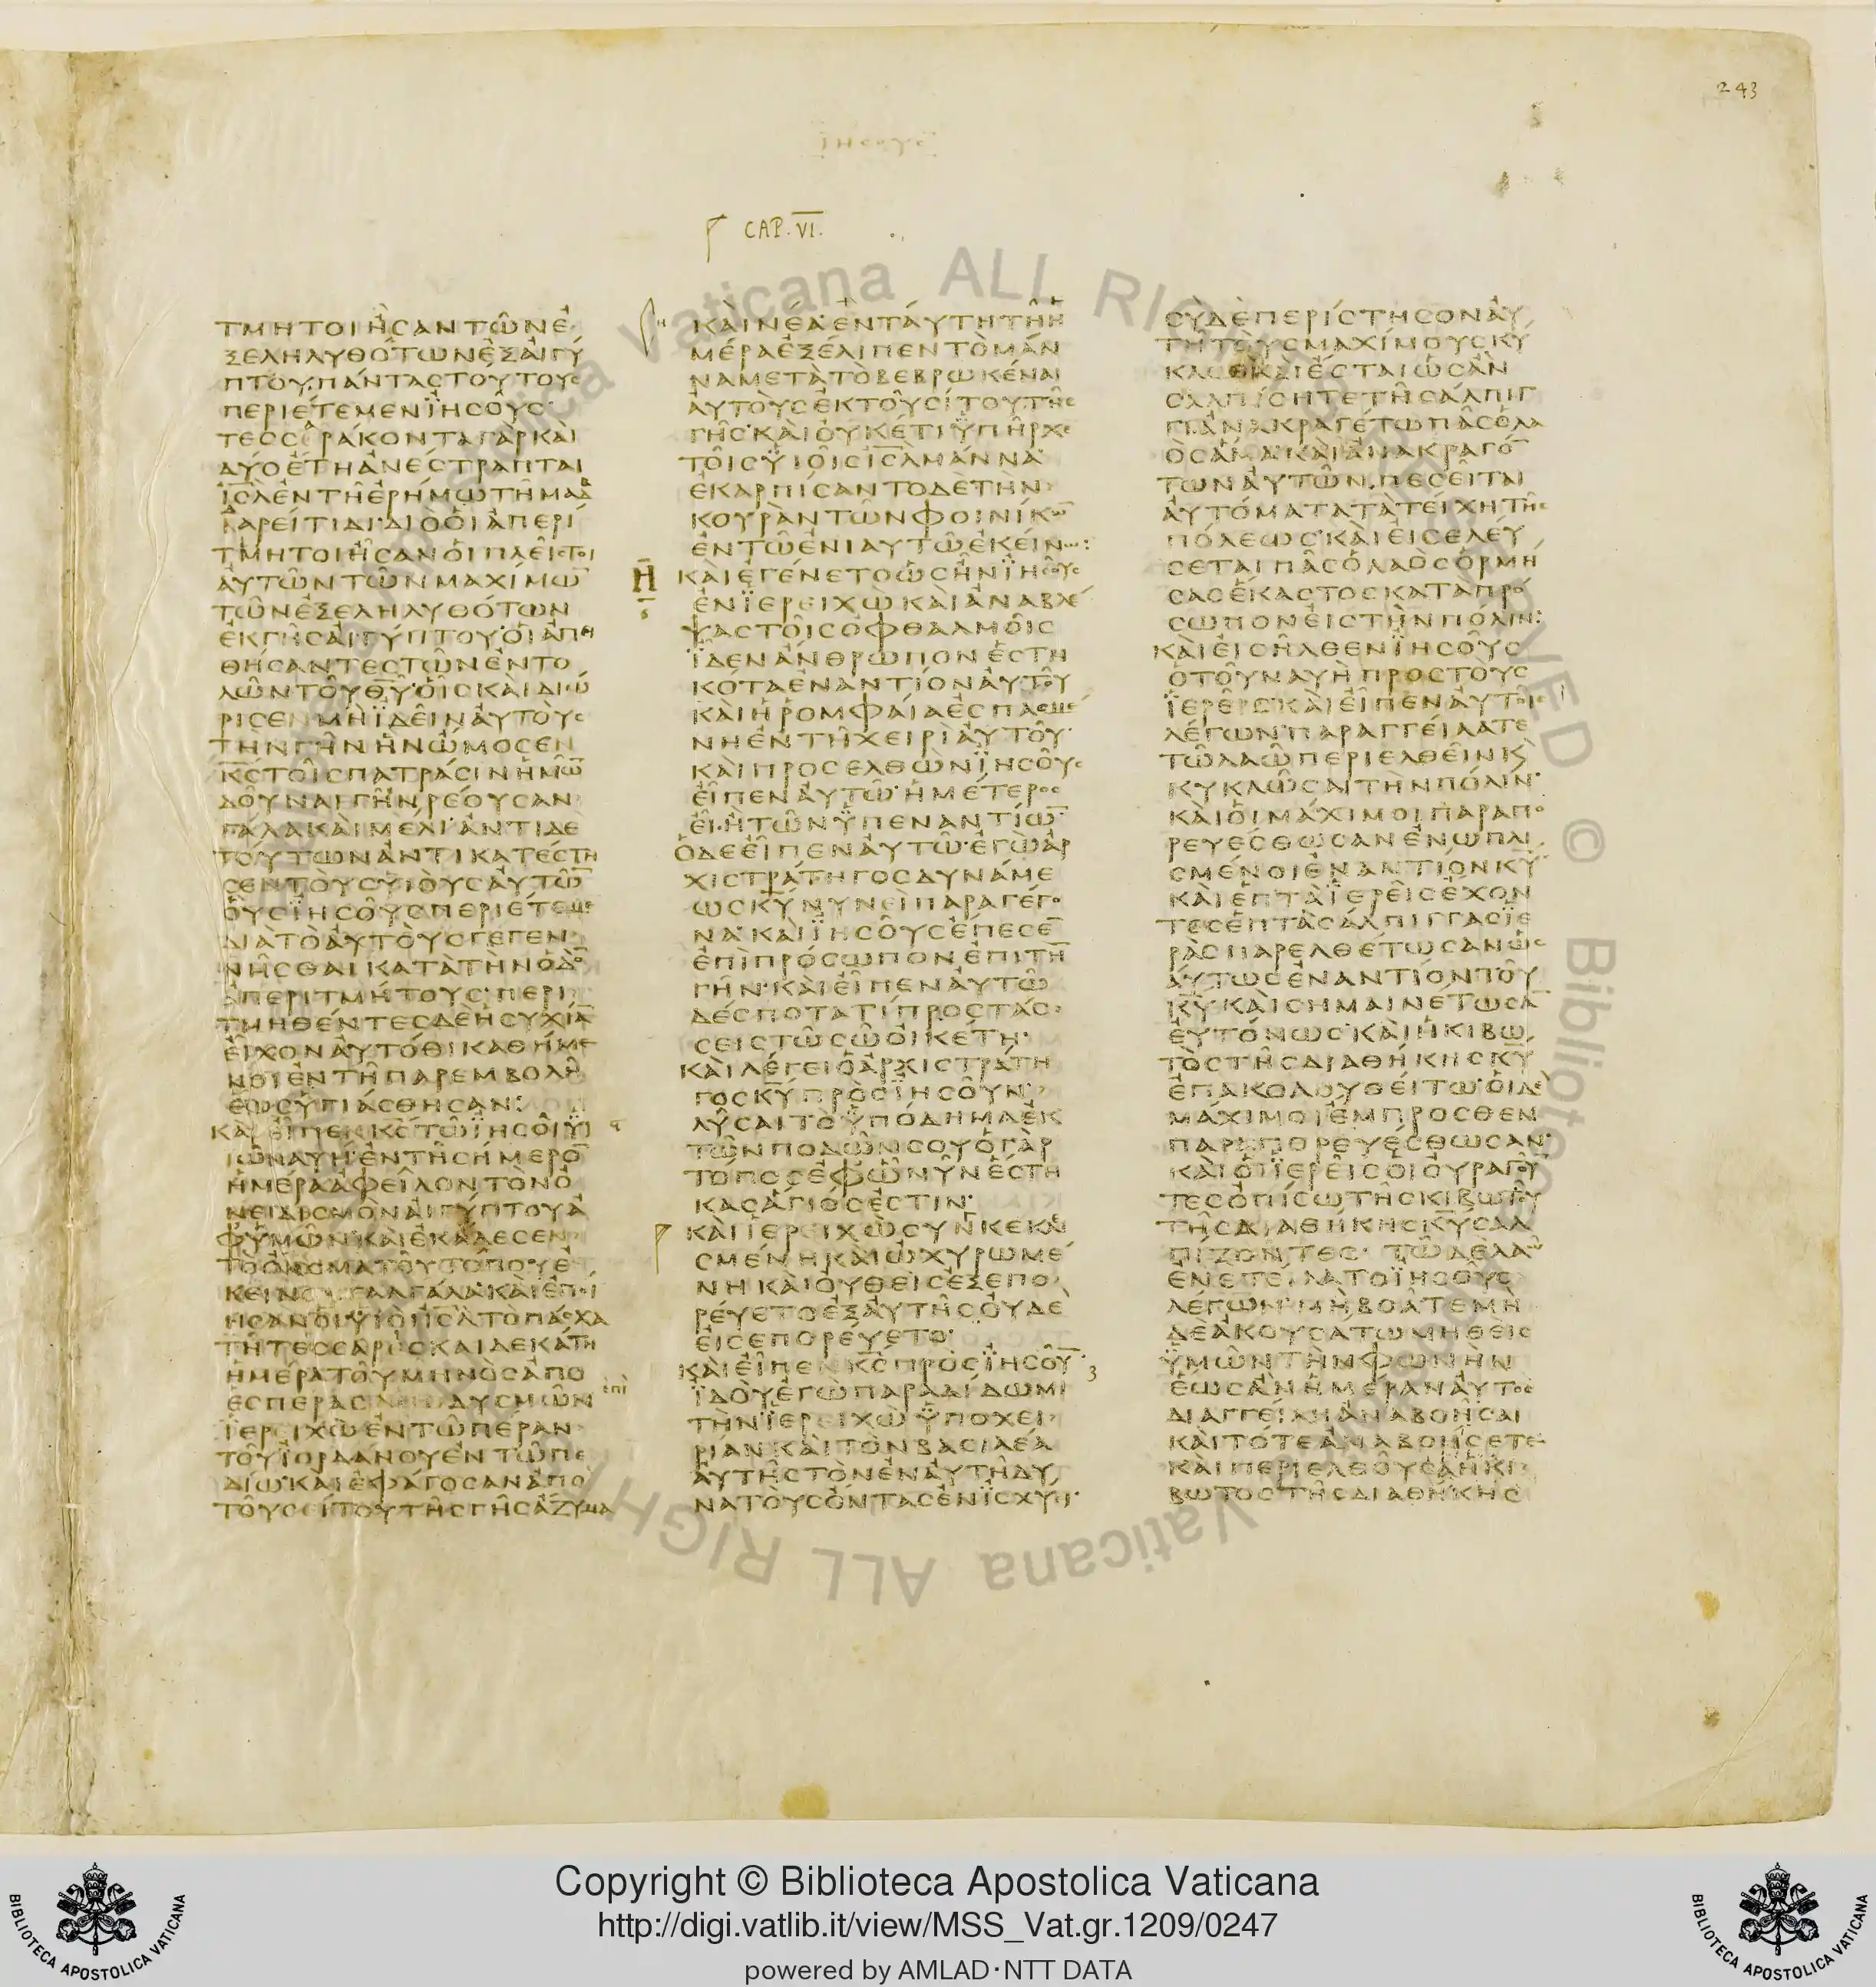 243
ΙΗϹΟΥϹ
CAP. VI.
ΤΜΗΤΟΙ ἮϹΑΝ ΤΩ͂Ν Ἐ
ΞΕΛΗΛΥΘΌΤΩΝ ἘΞ ΑἸΓΎ
ΠΤΟΥ· ΠΆΝΤΑϹ ΤΟΎΤΟΥϹ
ΠΕΡΙΈΤΕΜΕΝ ἸΗϹΟΥ͂Ϲ·
ΤΕϹϹΕΡΆΚΟΝΤΑ ΓᾺΡ ΚΑῚ
ΔΎΟ ἜΤΗ ἈΝΈϹΤΡΑΠΤΑΙ
ΙϹΛ ἘΝ ΤΗ͂ ἘΡΉΜΩ ΤΗ͂ ΜΑΔ
ΒΑΡΕΊΤΙΔΙ· ΔΙῸ ΟἹ ἈΠΕΡΊ
ΤΜΗΤΟΙ ἮϹΑΝ ΟἹ ΠΛΕΙ͂ϹΤΟΙ
ΑΥ̓ΤΩ͂Ν ΤΩ͂Ν ΜΑΧΊΜΩ̅
ΤΩ͂Ν ἘΞΕΛΗΛΥΘΌΤΩΝ
ἘΚ ΓΗ͂Ϲ ΑἸΓΎΠΤΟΥ· ΟἹ ἈΠΕΙ
ΘΉϹΑΝΤΕϹ ΤΩ͂Ν ἘΝΤΟ
ΛΩ͂Ν ΤΟΥ͂ Θ̅Υ̅· ΟἿϹ ΚΑῚ ΔΙΏ
ΡΙϹΕΝ ΜῊ ἸΔΕΙ͂Ν ΑΥ̓ΤΟῪϹ
ΤῊΝ ΓΗ͂Ν ἫΝ ὬΜΟϹΕΝ
Κ̅Ϲ̅ ΤΟΙ͂Ϲ ΠΑΤΡΆϹΙΝ ἩΜΩ̅
ΔΟΥ͂ΝΑΙ ΓΗ͂Ν ΡΈΟΥϹΑΝ
ΓΆΛΑ ΚΑῚ ΜΈΛΙ· ἈΝΤῚ ΔῈ
ΤΟΎΤΩΝ ἈΝΤΙΚΑΤΈϹΤΗ
ϹΕΝ ΤΟῪϹ ΥἹΟῪϹ ΑΥ̓ΤΩ̅
ΟὛϹ ἸΗϹΟΥ͂Ϲ ΠΕΡΙΈΤΕΜΕ
ΔΙᾺ ΤῸ ΑΥ̓ΤΟῪϹ ΓΕΓΕΝ
ΝΗ͂ϹΘΑΙ ΚΑΤᾺ ΤῊΝ ὉΔΟ̅
ἈΠΕΡΙΤΜΉΤΟΥϹ· ΠΕΡΙ
ΤΜΗΘΈΝΤΕϹ ΔῈ ἩϹΥΧΊΑ̅
ΕἾΧΟΝ ΑΥ̓ΤΌΘΙ ΚΑΘΉΜΕ
ΝΟΙ ἘΝ ΤΗ͂ ΠΑΡΕΜΒΟΛΗ͂
ἝΩϹ ὙΓΙΆϹΘΗϹΑΝ:
ΚΑῚ ΕἾΠΕΝ Κ̅Ϲ̅ ΤΩ͂ ἸΗϹΟΙ͂ ΥἹΩ͂
ΝΑΥΗ͂· ἘΝ ΤΗ͂ ϹΉΜΕΡΟ̅
ἩΜΈΡΑ ἈΦΕΙ͂ΛΟΝ ΤῸΝ Ὀ
ΝΕΙΔΙϹΜῸΝ ΑἸΓΎΠΤΟΥ Ἀ
Φ ὙΜΩ͂Ν· ΚΑῚ ἘΚΆΛΕϹΕΝ
ΤῸ ὌΝΟΜΑ ΤΟΥ͂ ΤΌΠΟΥ Ἐ
ΚΕΊΝΟΥ ΓΆΛΓΑΛΑ· ΚΑῚ ἘΠΟΊ
ΗϹΑΝ ΟἹ ΥἹΟῚ ΙϹΛ ΤῸ ΠΆϹΧΑ
ΤΗ͂ ΤΕϹϹΑΡΕϹΚΑΙΔΕΚΆΤΗ
ἩΜΈΡΑ ΤΟΥ͂ ΜΗΝῸϹ ἈΠΟ
ἙϹΠΈΡΑϹ ΔΥϹΜΩ͂Ν
ἸΕΡΕΙΧῺ ἘΝ ΤΩ͂ ΠΈΡΑΝ
ΤΟΥ͂ ἸΟΡΔΆΝΟΥ ἘΝ ΤΩ͂ ΠΕ
ΔΊΩ· ΚΑῚ ἘΦΆΓΟϹΑΝ ἈΠῸ
ΤΟΥ͂ ϹΕΊΤΟΥ ΤΗ͂Ϲ ΓΗ͂Ϲ ἌΖΥΜΑ
ΚΑῚ ΝΈΑ· ἘΝ ΤΑΎΤΗ ΤΗ͂ Ἡ
ΜΈΡΑ ἘΞΈΛΙΠΕΝ ΤῸ ΜΆΝ
ΝΑ ΜΕΤᾺ ΤῸ ΒΕΒΡΩΚΈΝΑΙ
ΑΥ̓ΤΟῪϹ ἘΚ ΤΟΥ͂ ϹΊΤΟΥ ΤΗ͂Ϲ
ΓΗ͂Ϲ· ΚΑῚ ΟΥ̓ΚΈΤΙ ὙΠΗ͂ΡΧΕ
ΤΟΙ͂Ϲ ΥἹΟΙ͂Ϲ ΙϹΛ ΜΆΝΝΑ·
ἘΚΑΡΠΊϹΑΝΤΟ ΔΕ ΤῊΝ
ΚΟΥΡᾺΝ ΤΩ͂Ν ΦΟΙΝΊΚΩ̅
ἘΝ ΤΩ͂ ἘΝΙΑΥΤΩ͂ ἘΚΕΊΝΩ:
Η ΚΑῚ ἘΓΈΝΕΤΟ ὩϹ ἮΝ ἸΗϹΟΥ͂Ϲ
ἘΝ ἸΕΡΕΙΧῺ ΚΑῚ ἈΝΑΒΛΈ
ΨΑϹ ΤΟΙ͂Ϲ ὈΦΘΑΛΜΟΙ͂Ϲ
ἼΔΕΝ ἌΝΘΡΩΠΟΝ ἙϹΤΗ
ΚΌΤΑ ἘΝΑΝΤΊΟΝ ΑΥ̓ΤΟΥ͂
ΚΑῚ Ἡ ῬΟΜΦΑΊΑ ἘϹΠΑϹΜΈ
ΝΗ ἘΝ ΤΗ͂ ΧΕΙΡῚ ΑΥ̓ΤΟΥ͂·
ΚΑῚ ΠΡΟϹΕΛΘῺΝ ἸΗϹΟΥ͂Ϲ
ΕἾΠΕΝ ΑΥ̓ΤΩ͂· ἩΜΈΤΕΡΟϹ
ΕἾ· Ἢ ΤΩ͂Ν ὙΠΕΝΑΝΤΊΩ̅·
Ὁ ΔΕ ΕἾΠΕΝ ΑΥ̓ΤΩ͂· ἘΓῺ ἈΡ
ΧΙϹΤΡΆΤΗΓΟϹ ΔΥΝΆΜΕ
ΩϹ Κ̅Υ̅ ΝΥΝΕῚ ΠΑΡΑΓΈΓΟ
ΝΑ· ΚΑῚ ἸΗϹΟΥ͂Ϲ ἜΠΕϹΕ̅
ἘΠῚ ΠΡΌϹΩΠΟΝ ἘΠῚ ΤῊ̅
ΓΗ͂Ν· ΚΑῚ ΕἾΠΕΝ ΑΥ̓ΤΩ͂
ΔΈϹΠΟΤΑ ΤΊ ΠΡΟϹΤΆϹ
ϹΕΙϹ ΤΩ͂ ϹΩ͂ ΟἸΚΈΤΗ·
ΚΑῚ ΛΈΓΕΙ Ὁ ἈΡΧΙϹΤΡΆΤΗ
ΓΟϹ Κ̅Υ̅ ΠΡῸϹ ἸΗϹΟΥ͂Ν·
ΛΥ͂ϹΑΙ ΤῸ ὙΠΌΔΗΜΑ ἘΚ
ΤΩ͂Ν ΠΟΔΩ͂Ν ϹΟΥ· Ὁ ΓᾺΡ
ΤΌΠΟϹ ἘΦ Ὧ ΝΥ͂Ν ἝϹΤΗ
ΚΑϹ ἍΓΙΌϹ ἘϹΤΙΝ·
ΚΑῚ ἸΕΡΕΙΧῺ ϹΥΝΚΕΚΛΕΙ
ϹΜΈΝΗ ΚΑῚ ὨΧΥΡΩΜΈ
ΝΗ ΚΑῚ ΟΥ̓ΘΕῚϹ ἘΞΕΠΟ
ΡΕΎΕΤΟ ἘΞ ΑΥ̓ΤΗ͂Ϲ ΟΥ̓ΔῈ
ΕἸϹΕΠΟΡΕΎΕΤΟ·
ΚΑῚ ΕἾΠΕΝ Κ̅Ϲ̅ ΠΡῸϹ ἸΗϹΟΥ̅·
ἸΔΟῪ ἘΓῺ ΠΑΡΑΔΊΔΩΜΙ
ΤῊΝ ἸΕΡΕΙΧῺ ὙΠΟΧΕΙ
ΡΊΑΝ ΚΑῚ ΤῸΝ ΒΑϹΙΛΈΑ
ΑΥ̓ΤΗ͂Ϲ ΤῸΝ ἘΝ ΑΥ̓ΤΗ͂ ΔΥ
ΝΑΤΟῪϹ ὌΝΤΑϹ ἘΝ ἸϹΧΎΙ·
ϹῪ ΔῈ ΠΕΡΊϹΤΗϹΟΝ ΑΥ̓
ΤΗ͂ ΤΟῪϹ ΜΑΧΊΜΟΥϹ ΚΎ
ΚΛΩ· ΚΑῚ ἜϹΤΑΙ ὩϹ ἊΝ
ϹΑΛΠΊϹΗΤΕ ΤΗ͂ ϹΆΛΠΙΓ
ΓΙ ἈΝΑΚΡΑΓΈΤΩ ΠΑ͂Ϲ Ὁ ΛΑ
ῸϹ ἍΜΑ· ΚΑῚ ἈΝΑΚΡΑΓΌ̅
ΤΩΝ ΑΥ̓ΤΩ͂Ν ΠΕϹΕΙ͂ΤΑΙ
ΑΥ̓ΤΌΜΑΤΑ ΤᾺ ΤΕΊΧΗ ΤΗ͂Ϲ
ΠΌΛΕΩϹ· ΚΑῚ ΕἸϹΕΛΕΎ
ϹΕΤΑΙ ΠΑ͂Ϲ Ὁ ΛΑῸϹ ὉΡΜΉ
ϹΑϹ ἝΚΑϹΤΟϹ ΚΑΤᾺ ΠΡΌ
ϹΩΠΟΝ ΕἸϹ ΤῊΝ ΠΌΛΙΝ:
ΚΑῚ ΕἸϹΗ͂ΛΘΕΝ ἸΗϹΟΥ͂Ϲ
Ὁ ΤΟΥ͂ ΝΑΥῊ ΠΡΟϹ ΤΟῪϹ
ἹΕΡΕΙ͂Ϲ· ΚΑῚ ΕἾΠΕΝ ΑΥ̓ΤΟΙ͂Ϲ
ΛΈΓΩΝ· ΠΑΡΑΓΓΕΊΛΑΤΕ
ΤΩ͂ ΛΑΩ͂ ΠΕΡΙΕΛΘΕΙ͂Ν Κ̀
ΚΥΚΛΩ͂ϹΑΙ ΤῊΝ ΠΌΛΙΝ·
ΚΑῚ ΟἹ ΜΆΧΙΜΟΙ ΠΑΡΑΠΟ
ΡΕΥΈϹΘΩϹΑΝ ἘΝΩΠΛΙ
ϹΜΈΝΟΙ ἘΝΑΝΤΊΟΝ Κ̅Υ̅·
ΚΑῚ ἙΠΤᾺ ἹΕΡΕΙ͂Ϲ ἜΧΟΝ
ΤΕϹ ἙΠΤᾺ ϹΆΛΠΙΓΓΑϹ ἹΕ
ΡᾺϹ ΠΑΡΕΛΘΈΤΩϹΑΝ ὩϹ
ΑΎΤΩϹ ἘΝΑΝΤΊΟΝ ΤΟΥ͂
Κ̅Υ̅ ΚΑῚ ϹΗΜΑΙΝΈΤΩϹΑ̅
ΕΥ̓ΤΌΝΩϹ· ΚΑῚ Ἡ ΚΙΒΩ
ΤῸϹ ΤΗ͂Ϲ ΔΙΑΘΉΚΗϹ Κ̅Υ̅
ἘΠΑΚΟΛΟΥΘΕΊΤΩ· ΟἹ ΔῈ
ΜΆΧΙΜΟΙ ἜΜΠΡΟϹΘΕΝ
ΠΑΡΑΠΟΡΕΥΈϹΘΩϹΑΝ·
ΚΑῚ ΟἹ ἹΕΡΕΙ͂Ϲ ΟἹ ΟΥ̓ΡΑΓΟΥ͂
ΤΕϹ ὈΠΊϹΩ ΤΗ͂Ϲ ΚΙΒΩΤΟΥ͂
ΤΗ͂Ϲ ΔΙΑΘΉΚΗϹ Κ̅Υ̅ ϹΑΛ
ΠΊΖΟΝΤΕϹ· ΤΩ͂ ΔῈ ΛΑΩ͂
ἘΝΕΤΕΊΛΑΤΟ ἸΗϹΟΥ͂Ϲ
ΛΈΓΩΝ· ΜῊ ΒΟΑ͂ΤΕ ΜῊ
ΔῈ ἈΚΟΥϹΆΤΩ ΜΗΘΕῚϹ
ὙΜΩ͂Ν ΤῊΝ ΦΩΝῊΝ
ἝΩϹ ἊΝ ἩΜΈΡΑΝ ΑΥ̓ΤῸϹ
ΔΙΑΓΓΕΊΛΗ ἈΝΑΒΟΗ͂ϹΑΙ
ΚΑῚ ΤΌΤΕ ἈΝΑΒΟΉϹΕΤΕ
ΚΑῚ ΠΕΡΙΕΛΘΟΥ͂ϹΑ Ἡ ΚΙ
ΒΩΤῸϹ ΤΗ͂Ϲ ΔΙΑΘΉΚΗϹ
Copyright © Biblioteca Apostolica Vaticana
http://digi.vatlib.it/view/MSS_Vat.gr.1209/0247
powered by AMLAD·NTT DATA
BIBLIOTECA APOSTOLICA VATICANA
BIBLIOTECA APOSTOLICA VATICANA